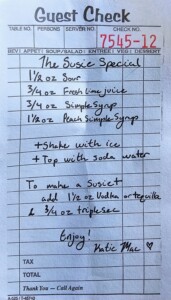 Guest Check
TABLE NO. PERSONS SERVER CHECK NO.
7545-12
BEV APPET SOUP/SALAD ENTREE VEG DESSERT
The Susie Special
1 1/2 oz Sour
3/4 oz Fresh lime juice
3/4 oz Simple Syrup
1 1/2 oz Peach Simple Syrup
+ Shake with ice
+ Top with soda water
To make a Susiet
add 1 1/2 oz Vodka or tequila
& 3/4 oz triple sec
Enjoy!
Katie Mac ♡
TAX
TOTAL
Thank You — Call Again